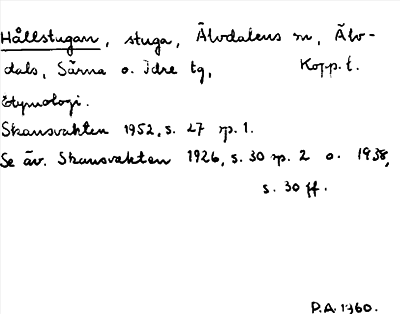 Hållstugan, stuga, Älvdalens sn, Älv-
dals, Särna o. Idre tg, Kopp. l.
Etymologi.
Skansvakten 1952, s. 27 sp. 1.
Se äv. Skansvakten 1926, s. 30 sp. 2 o. 1938,
s. 30 ff.
P.A. 1960.